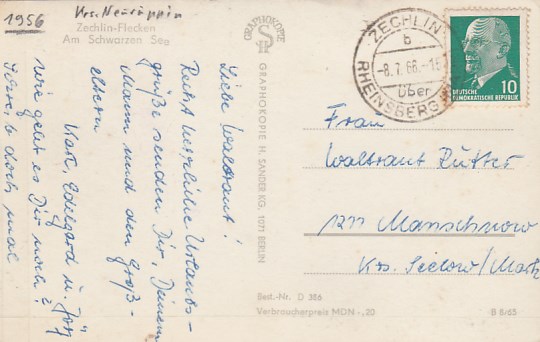 1956
Krs. Neuruppin
Zechlin-Flecken
Am Schwarzen See
GRAPHOKOPIE
GRAPHOKOPIE H. SANDER KG, 1071 BERLIN
ZECHLIN
b
-8.7.66.-15
über
RHEINSBERG
10
DEUTSCHE
DEMOKRATISCHE REPUBLIK
Liebe Waltraut!
Recht herzliche Urlaubs-
grüße senden Dir, Deinem
Mann und den Groß-
eltern
Karl, Edelgard u. Jörg
Wie geht es Dir noch?
doch mal
Frau
Waltraut Rutter
1211 Manschnow
Krs. Seelow/Mark
Best.-Nr. D 386
Verbraucherpreis MDN -,20
B 8/65